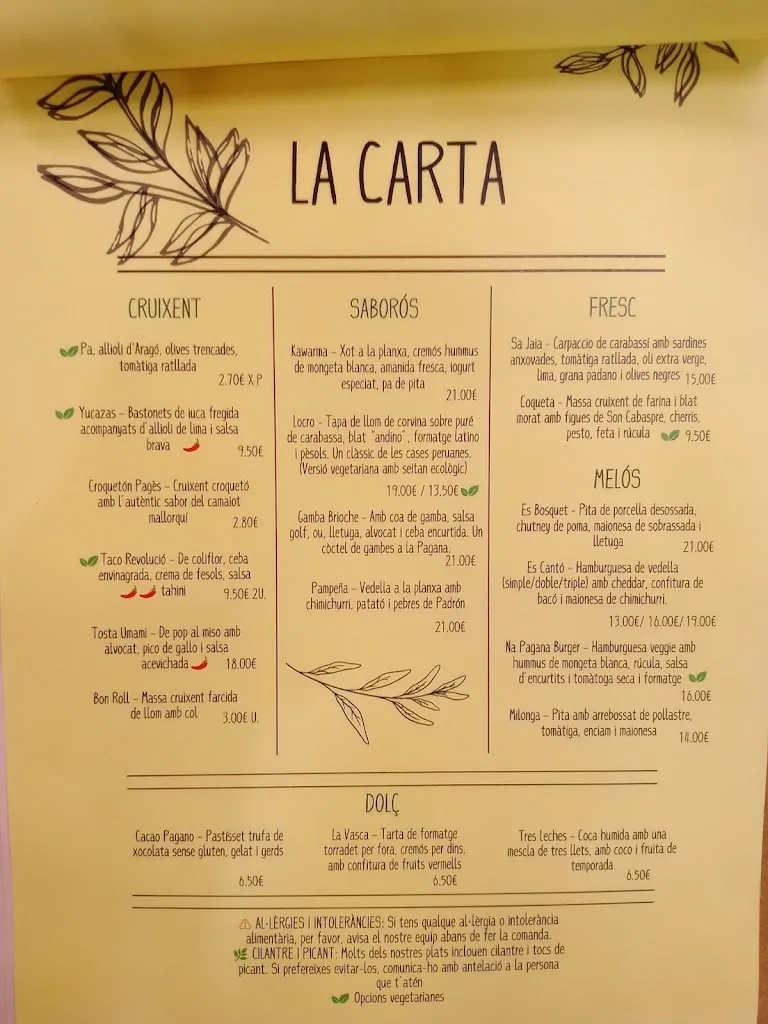 LA CARTA
CRUIXENT
Pa, allioli d'Aragó, olives trencades,
tomàtiga ratllada
2.70€ X P
Yucazas - Bastonets de iuca fregida
acompanyats d'allioli de lima i salsa
brava
9.50€
Croquetón Pagès - Cruixent croquetó
amb l'autèntic sabor del camaiot
mallorquí
2.80€
Taco Revolució - De coliflor, ceba
envinagrada, crema de fesols, salsa
tahini
9.50€ 2U.
Tosta Umami - De pop al miso amb
alvocat, pico de gallo i salsa
acevichada
18.00€
Bon Roll - Massa cruixent farcida
de llom amb col
3.00€ U.
SABORÓS
Kawarma - Xot a la planxa, cremós hummus
de mongeta blanca, amanida fresca, iogurt
especiat, pa de pita
21.00€
Locro - Tapa de llom de corvina sobre puré
de carabassa, blat "andino", formatge latino
i pèsols. Un clàssic de les cases peruanes.
(Versió vegetariana amb seitan ecològic)
19.00€ / 13.50€
Gamba Brioche - Amb coa de gamba, salsa
golf, ou, lletuga, alvocat i ceba encurtida. Un
còctel de gambes a la Pagana.
21.00€
Pampeña - Vedella a la planxa amb
chimichurri, patató i pebres de Padrón
21.00€
FRESC
Sa Jaia - Carpaccio de carabassí amb sardines
anxovades, tomàtiga ratllada, oli extra verge,
lima, grana padano i olives negres
15,00€
Coqueta - Massa cruixent de farina i blat
morat amb figues de Son Cabaspre, cherris,
pesto, feta i rúcula
9.50€
MELÓS
Es Bosquet - Pita de porcella desossada,
chutney de poma, maionesa de sobrassada i
lletuga
21.00€
Es Cantó - Hamburguesa de vedella
(simple/doble/triple) amb cheddar, confitura de
bacó i maionesa de chimichurri.
13.00€/ 16.00€/ 19.00€
Na Pagana Burger - Hamburguesa veggie amb
hummus de mongeta blanca, rúcula, salsa
d'encurtits i tomàtoga seca i formatge
16.00€
Milonga - Pita amb arrebossat de pollastre,
tomàtiga, enciam i maionesa
14.00€
DOLÇ
Cacao Pagano - Pastisset trufa de
xocolata sense gluten, gelat i gerds
6.50€
La Vasca - Tarta de formatge
torradet per fora, cremós per dins,
amb confitura de fruits vermells
6.50€
Tres Leches - Coca humida amb una
mescla de tres llets, amb coco i fruita de
temporada
6.50€
AL·LÈRGIES I INTOLERÀNCIES: Si tens qualque al·lèrgia o intolerància
alimentària, per favor, avisa el nostre equip abans de fer la comanda.
CILANTRE I PICANT: Molts dels nostres plats inclouen cilantre i tocs de
picant. Si prefereixes evitar-los, comunica-ho amb antelació a la persona
que t'atén
Opcions vegetarianes